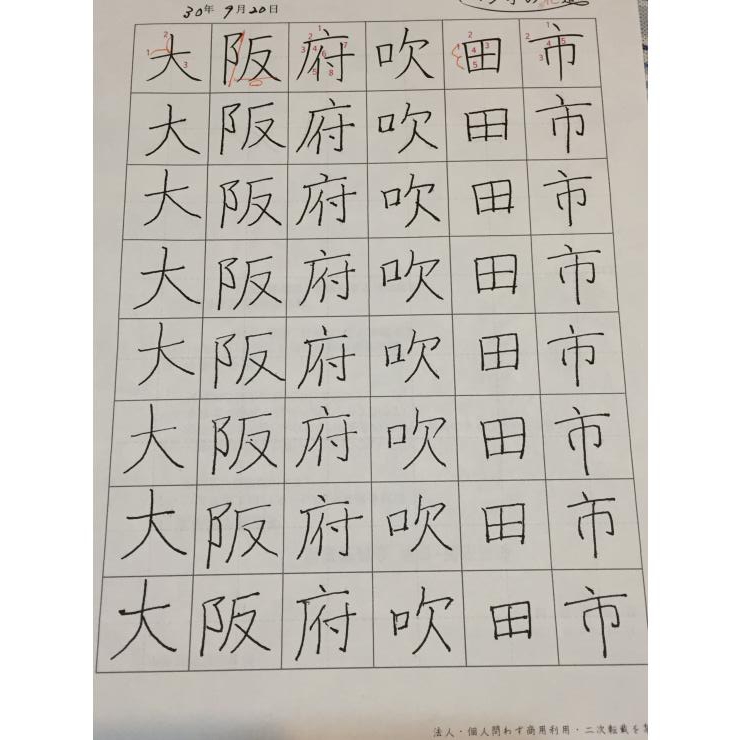 30年9月20日
大阪府吹田市
大阪府吹田市
大阪府吹田市
大阪府吹田市
大阪府吹田市
大阪府吹田市
大阪府吹田市
大阪府吹田市
法人・個人問わず商用利用・二次転載を